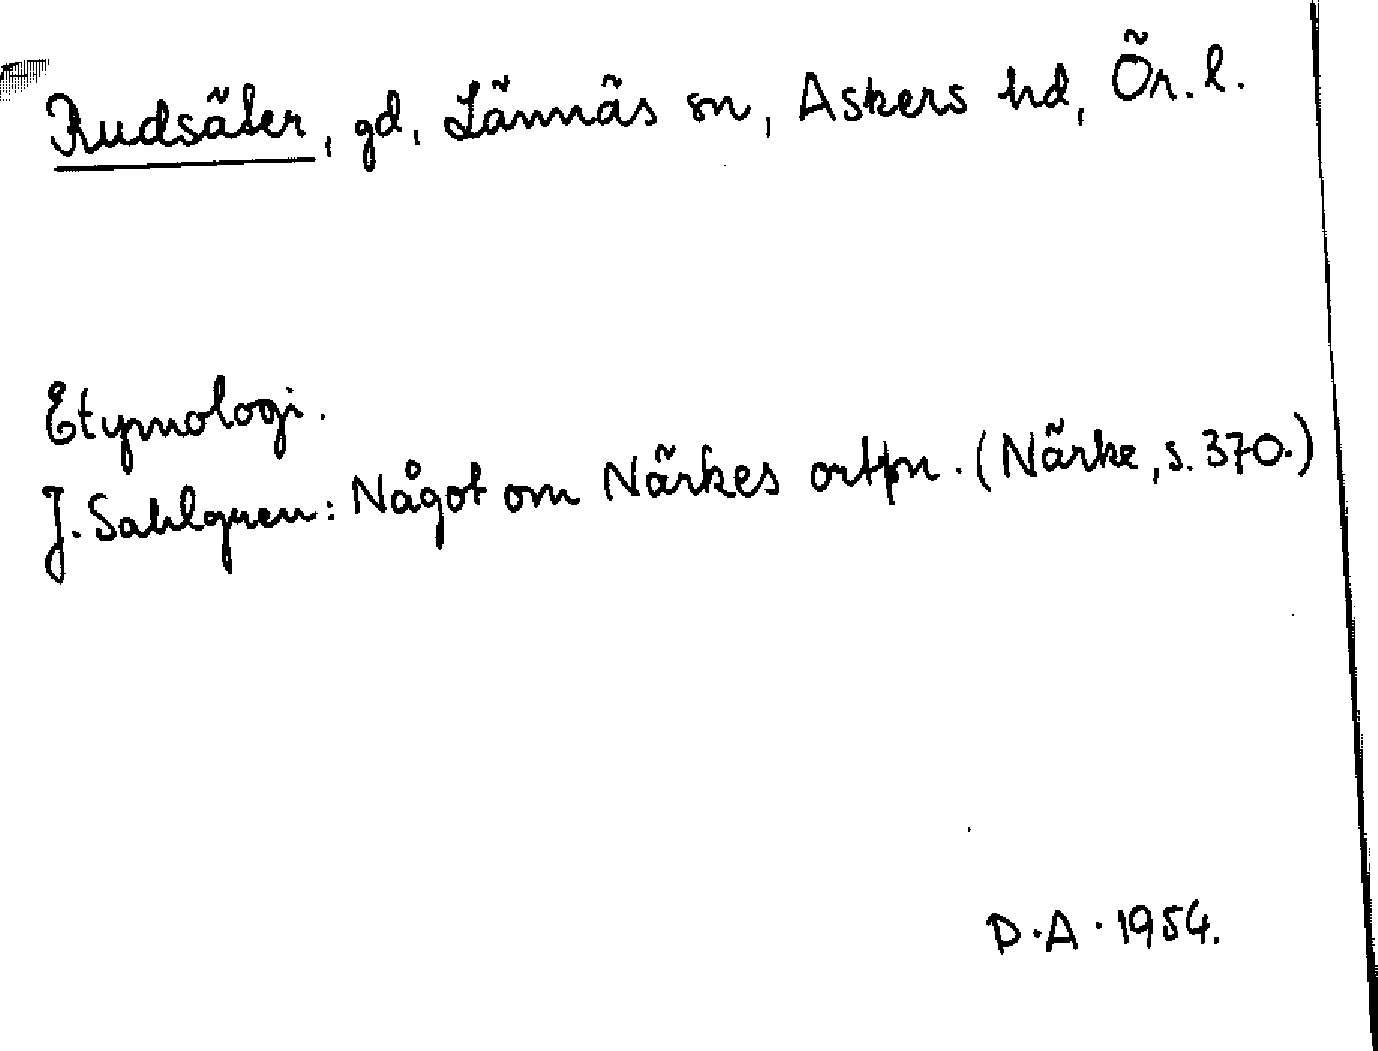 Rudsäter, gd, Lännäs sn, Askers hd, Ör. l.
Etymologi.
J. Sahlgren: Något om Närkes ortpn. (Närke, s. 370.)
D.A. 1954.